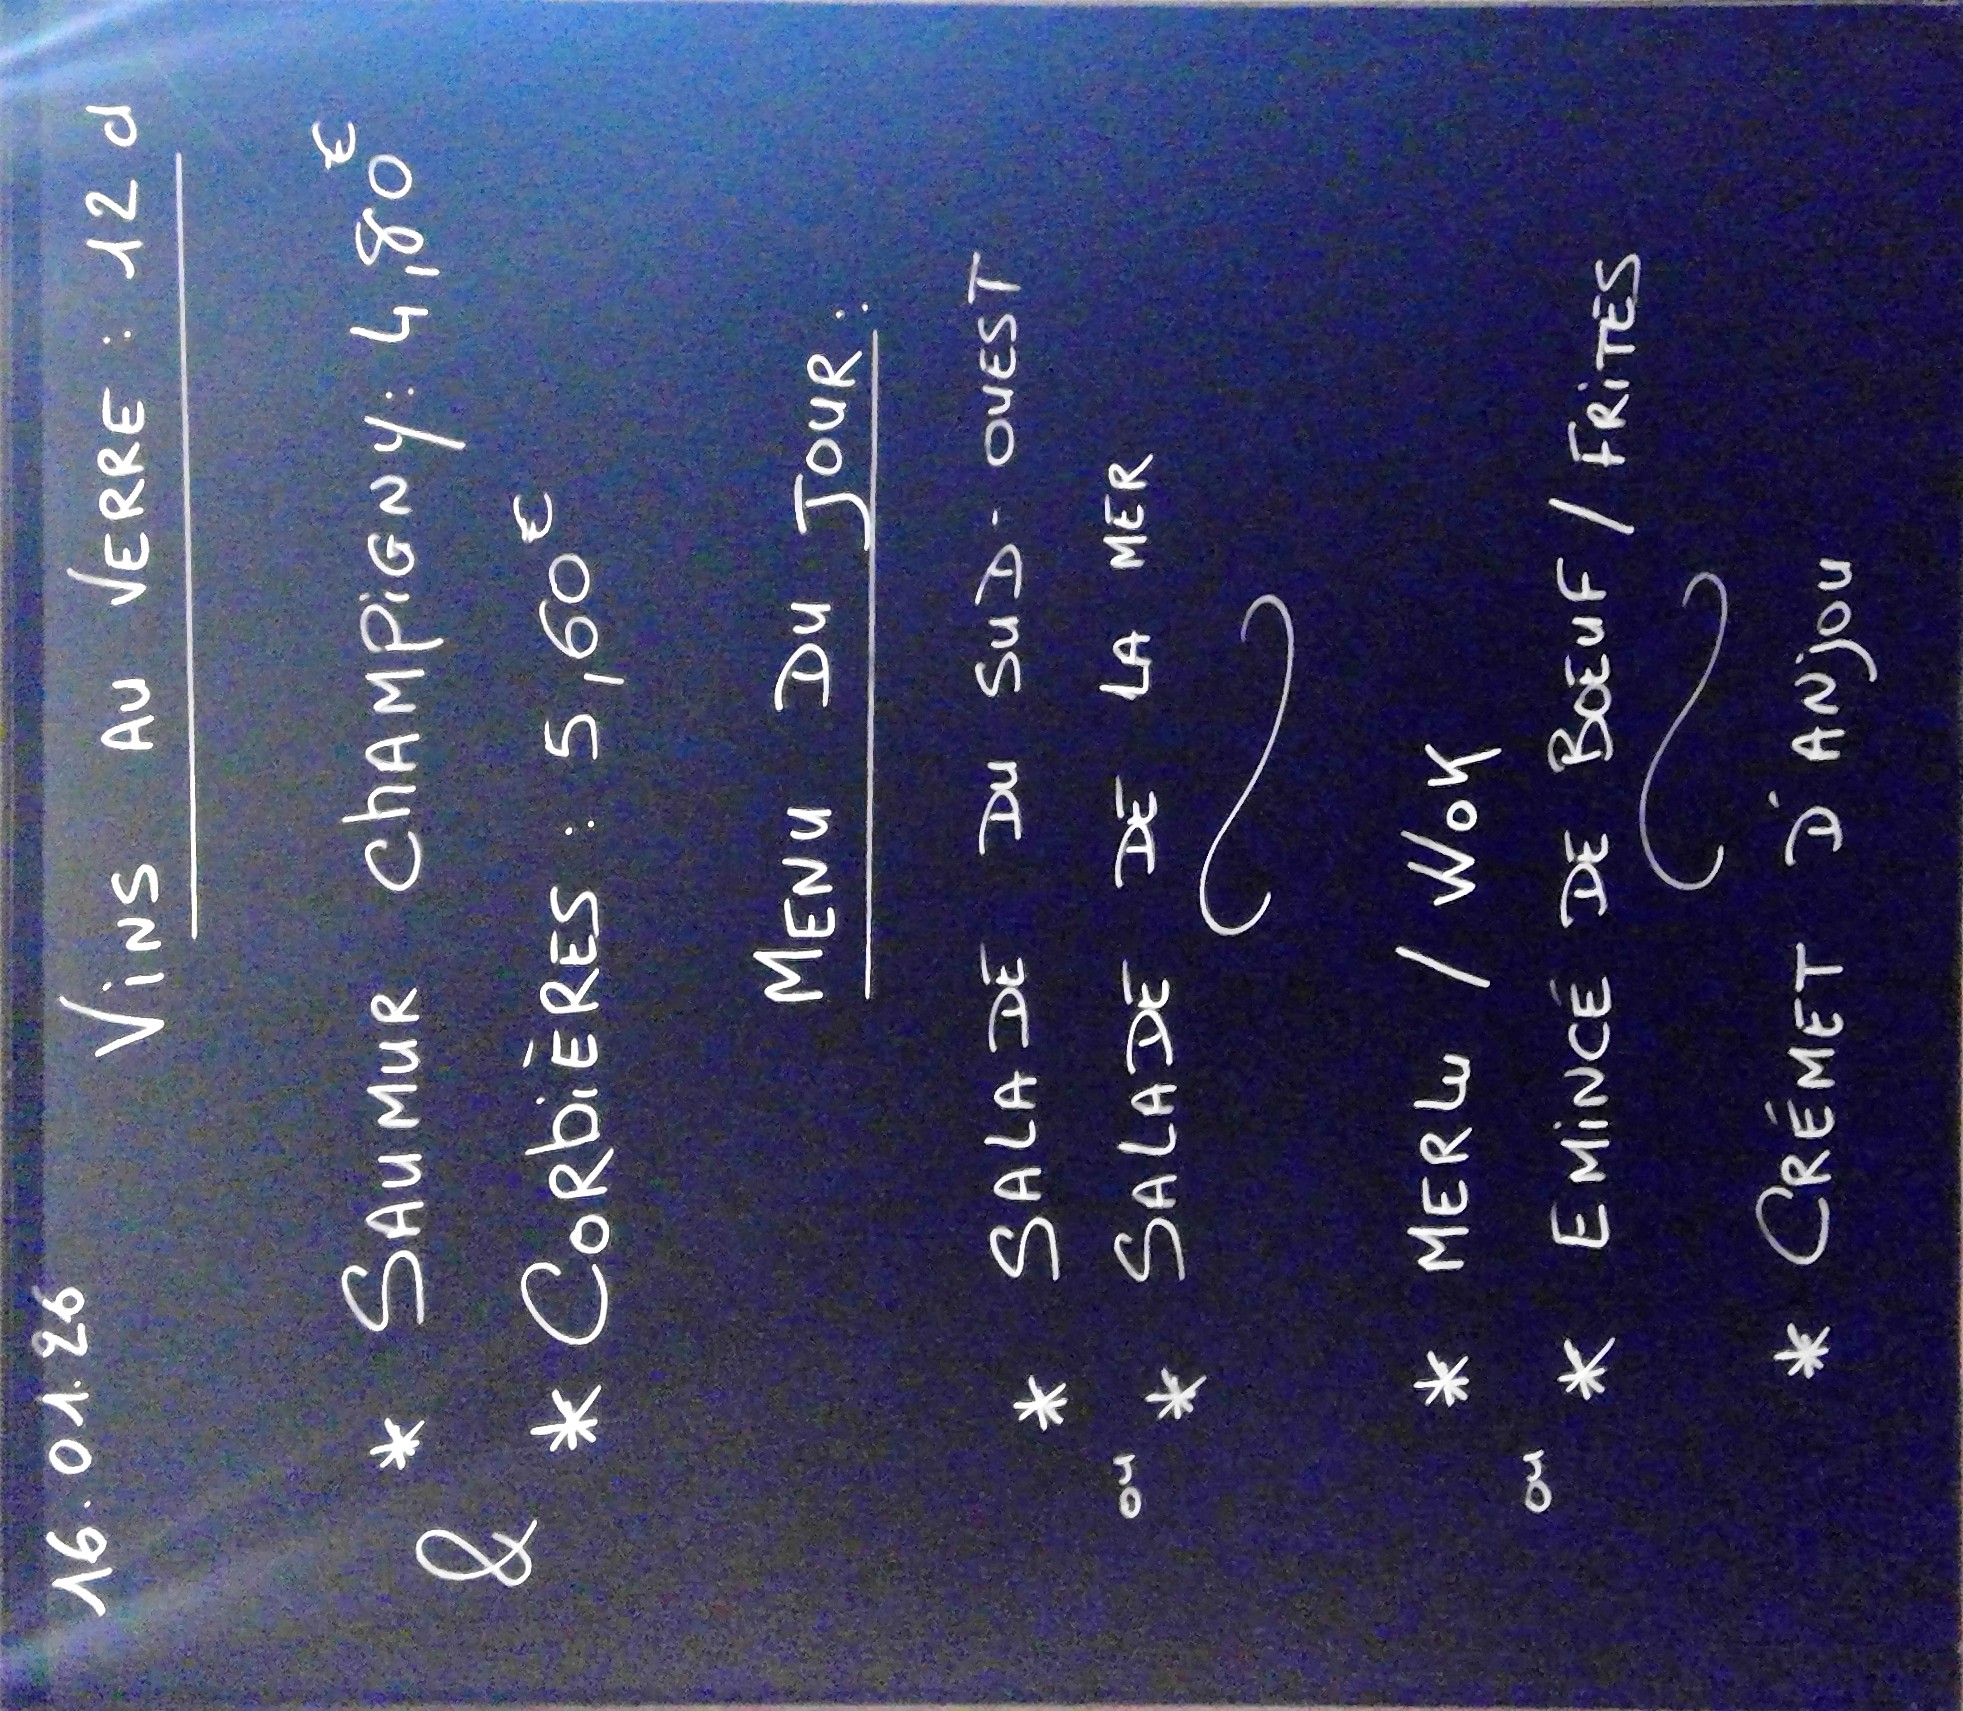 16.01.26
Vins au Verre : 12 cl
* Saumur Champigny : 4,80€
&
* Corbières : 5,60€
Menu du Jour :
* Salade du Sud-Ouest
ou
* Salade de la mer
* Merlu / Wok
ou
* Emincé de Boeuf / Frites
* Crémet d'Anjou